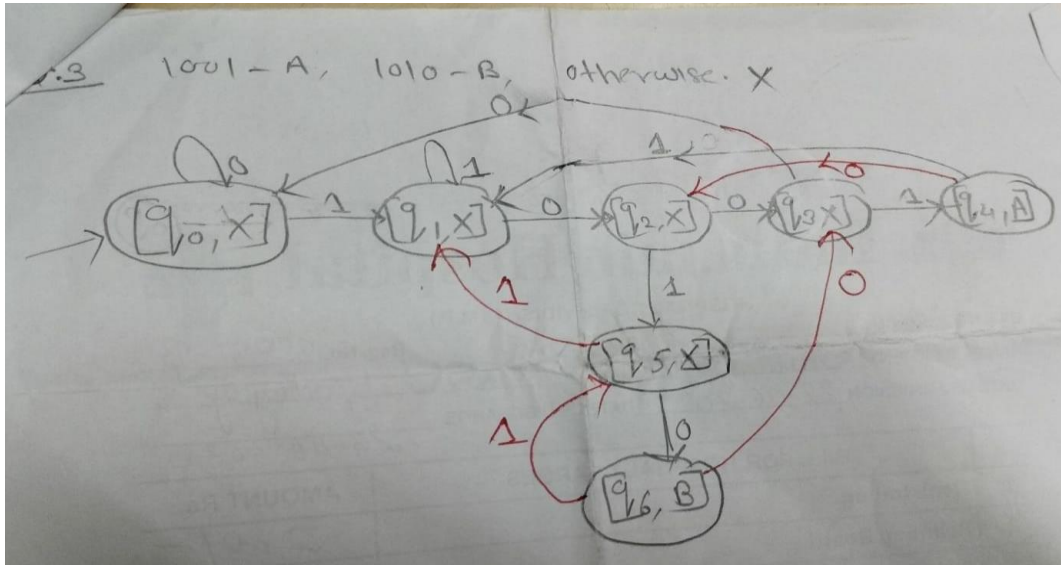 .3 1001 - A, 1010 - B, otherwise. X
0
0 1 1 0
[q0, X] 1 [q1, X] 0 [q2, X] 0 [q3 X] 1 [q4, A]
1 1 0
[q5, X]
1 0
[q6, B]
AMOUNT Rs